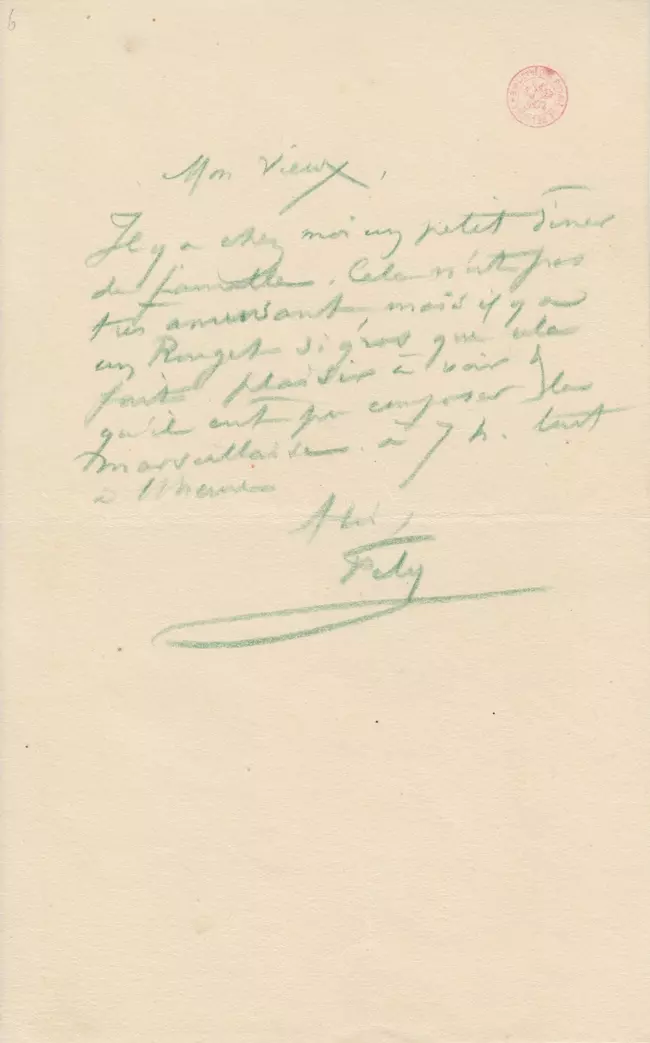 6
Mon vieux,
Il y a chez moi un petit dîner
de famille. Cela n'est pas
très amusant mais il y a
un Rouget si gros que cela
fait plaisir à voir
qu'il eut pu composer la
Marseillaise. à 7 h. tart
à l'heure
Fély